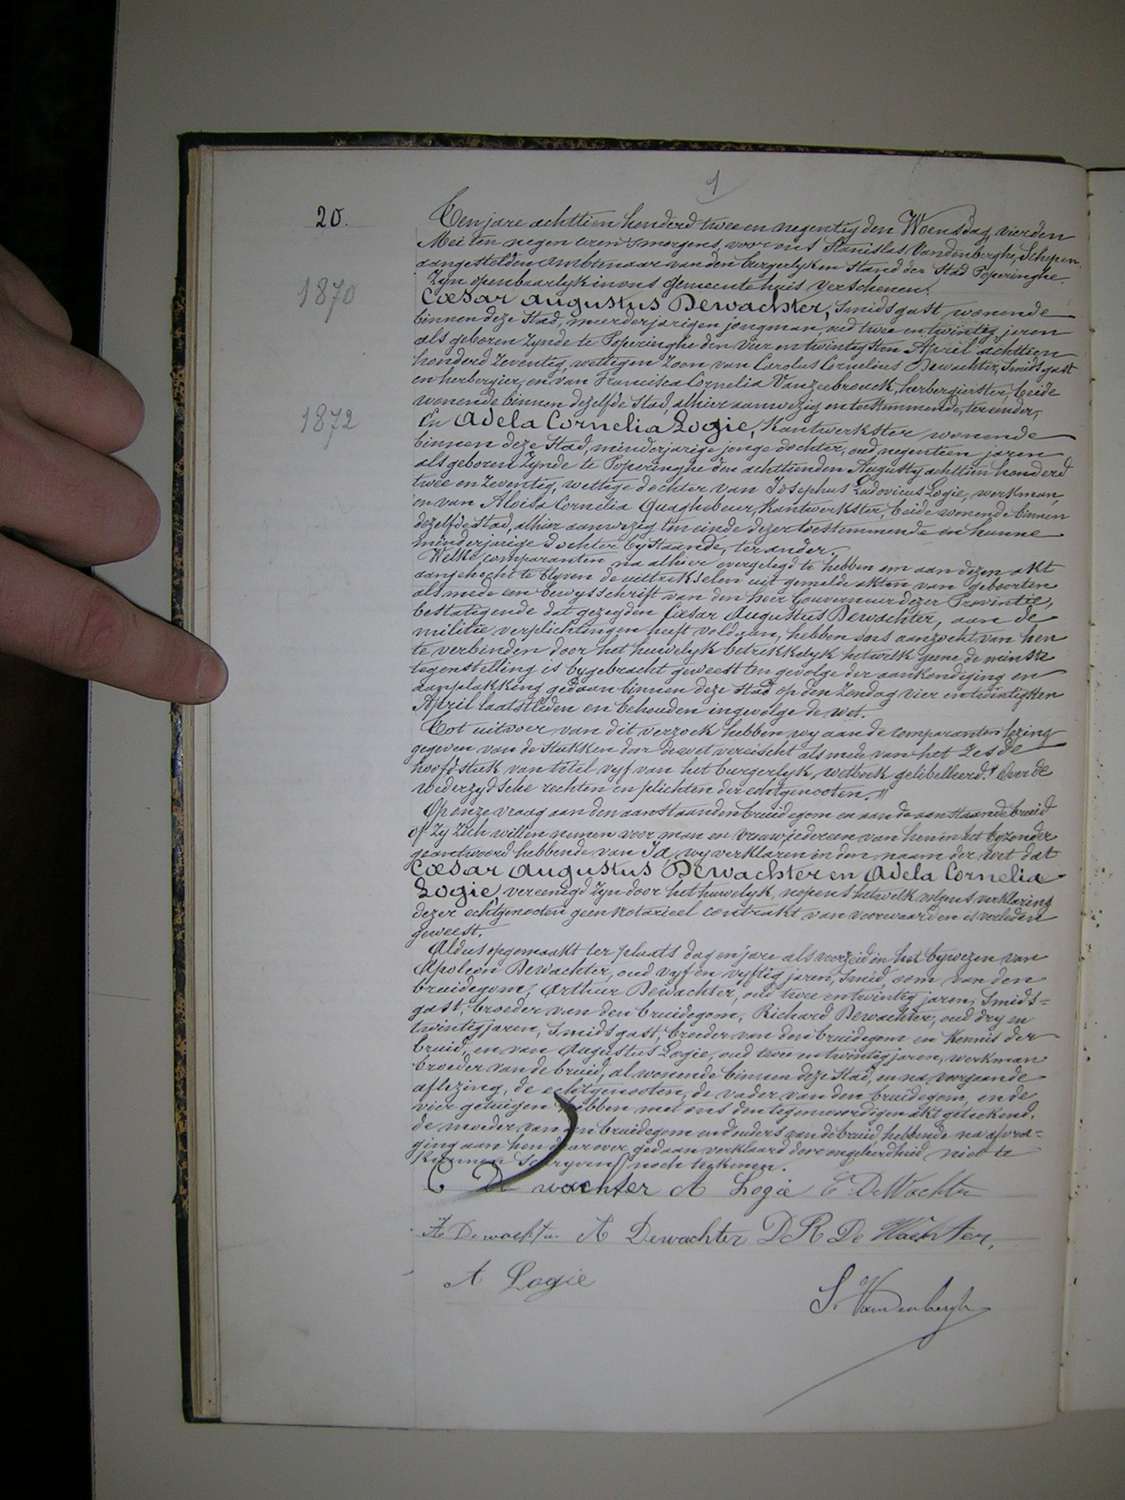 1
20.
Ten jare achttien honderd twee en negentig den Woensdag vierden
Mei ten negen uren 's morgens, voor ons Stanislas Vandenberghe, Schepen,
aangestelden Ambtenaar van den burgerlyken Stand der Stad Poperinghe
Zyn openbaarlyk in ons Gemeentehuis verschenen:
1870
Cæsar Augustus Dewachter, Smidsgast, wonende
binnen deze Stad, meerderjarigen jongman, oud twee en twintig jaren
als geboren zynde te Poperinghe den vier en twintigsten April achttien
honderd zeventig, wettigen zoon van Carolus Cornelius Dewachter, Smidsgast
en herbergier, en van Francisca Cornelia Vanzeebrouck, herbergierster, beide
wonende binnen dezelfde Stad, alhier aanwezig en toestemmende, ter eender,
1872
En Adela Cornelia Logie, Kantwerkster, wonende
binnen deze Stad, minderjarige jonge dochter, oud negentien jaren
als geboren zynde te Poperinghe den achttienden Augusty achttien honderd
twee en zeventig, wettige dochter van Josephus Ludovicus Logie, werkman,
en van Aloisa Cornelia Quaghebeur, Kantwerkster, beide wonende binnen
dezelfde Stad, alhier aanwezig ten einde dezer toestemmende en hunne
minderjarige dochter bystaande, ter ander.
Welke comparanten na alhier overgelegd te hebben om aan dezen akt
aangehecht te blyven de uittrekselen uit gemelde akten van geboorten
alsmede een bewysschrift van den Heer Gouverneur dezer Provintie,
bestatigende dat gezegden Cæsar Augustus Dewachter, aan de
militie verplichtingen heeft voldaan, hebben ons aanzocht van hen
te verbinden door het huwelyk betrekkelyk hetwelk geene de minste
tegenstelling is bygebracht geweest ten gevolge der aankondiging en
aanplakking gedaan binnen deze Stad op den Zondag vier en twintigsten
April laatstleden en behouden ingevolge de wet.
Tot uitvoer van dit verzoek hebben wy aan de comparanten lezing
gegeven van de Stukken door de wet vereischt alsmede van het Zesde
hoofdstuk van titel vyf van het burgerlyk wetboek gelibelleerd: "Over de
wederzydsche rechten en plichten der echtgenooten."
Op onze vraag aan den aanstaanden bruidegom en aan de aanstaande bruid
of Zy Zich willen nemen voor man en vrouw, iedereen van hen in het byzonder
geantwoord hebbende van Ja, wy verklaren in den naam der wet dat
Cæsar Augustus Dewachter en Adela Cornelia
Logie, vereenigd zyn door het huwelyk, nopens hetwelk volgens verklaring
dezer echtgenooten geen notarieel contrakt van voorwaarden is verleden
geweest.
Aldus opgemaakt ter plaats dag en jare als voorzeid in het bywezen van
Apoleon Dewachter, oud vyf en vyftig jaren, Smid, oom van den
bruidegom, Arthur Dewachter, oud twee en twintig jaren, Smids=
gast, broeder van den bruidegom, Richard Dewachter, oud dry en
twintig jaren, Smidsgast, broeder van den bruidegom en Kennis der
bruid, en van Augustus Logie, oud twee en twintig jaren, werkman
broeder van de bruid, al wonende binnen deze Stad, en na voorgaande
aflezing, de echtgenooten, de vader van den bruidegom, en de
vier getuigen hebben met ons den tegenwoordigen akt geteekend,
de moeder van den bruidegom en de ouders van de bruid hebbende na afvra=
ging aan hen daarover gedaan verklaard door ongeleerdheid niet te
kunnen Schryven noch teekenen.
C De wachter A Logie C De Wachter
A Dewachter A Dewachter D R De Wachter,
A Logie
S. Vandenberghe